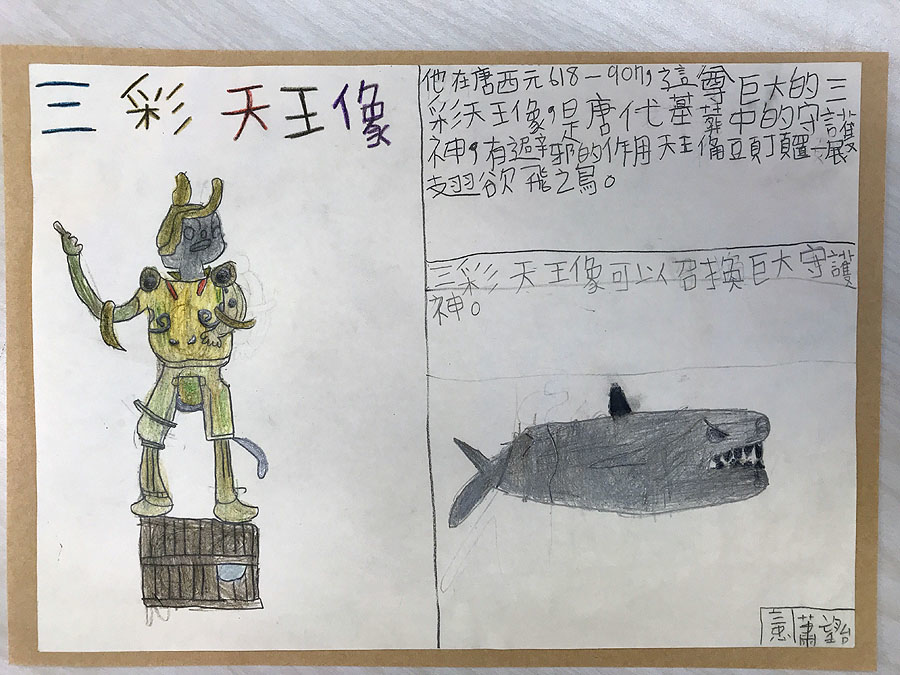 三彩天王像
他在唐西元618-907，這尊巨大的三
彩天王像，是唐代墓葬中的守護
神，有避邪的作用天王俑頭頂置一展
翅欲飛之鳥。
三彩天王像可以召換巨大守護
神。
蕭